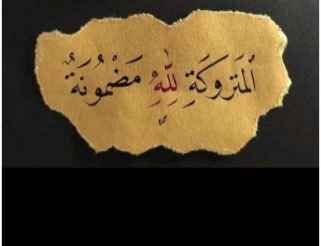 المَتروكَةِ لِلّٰهِ مَضْمُونَةٌ